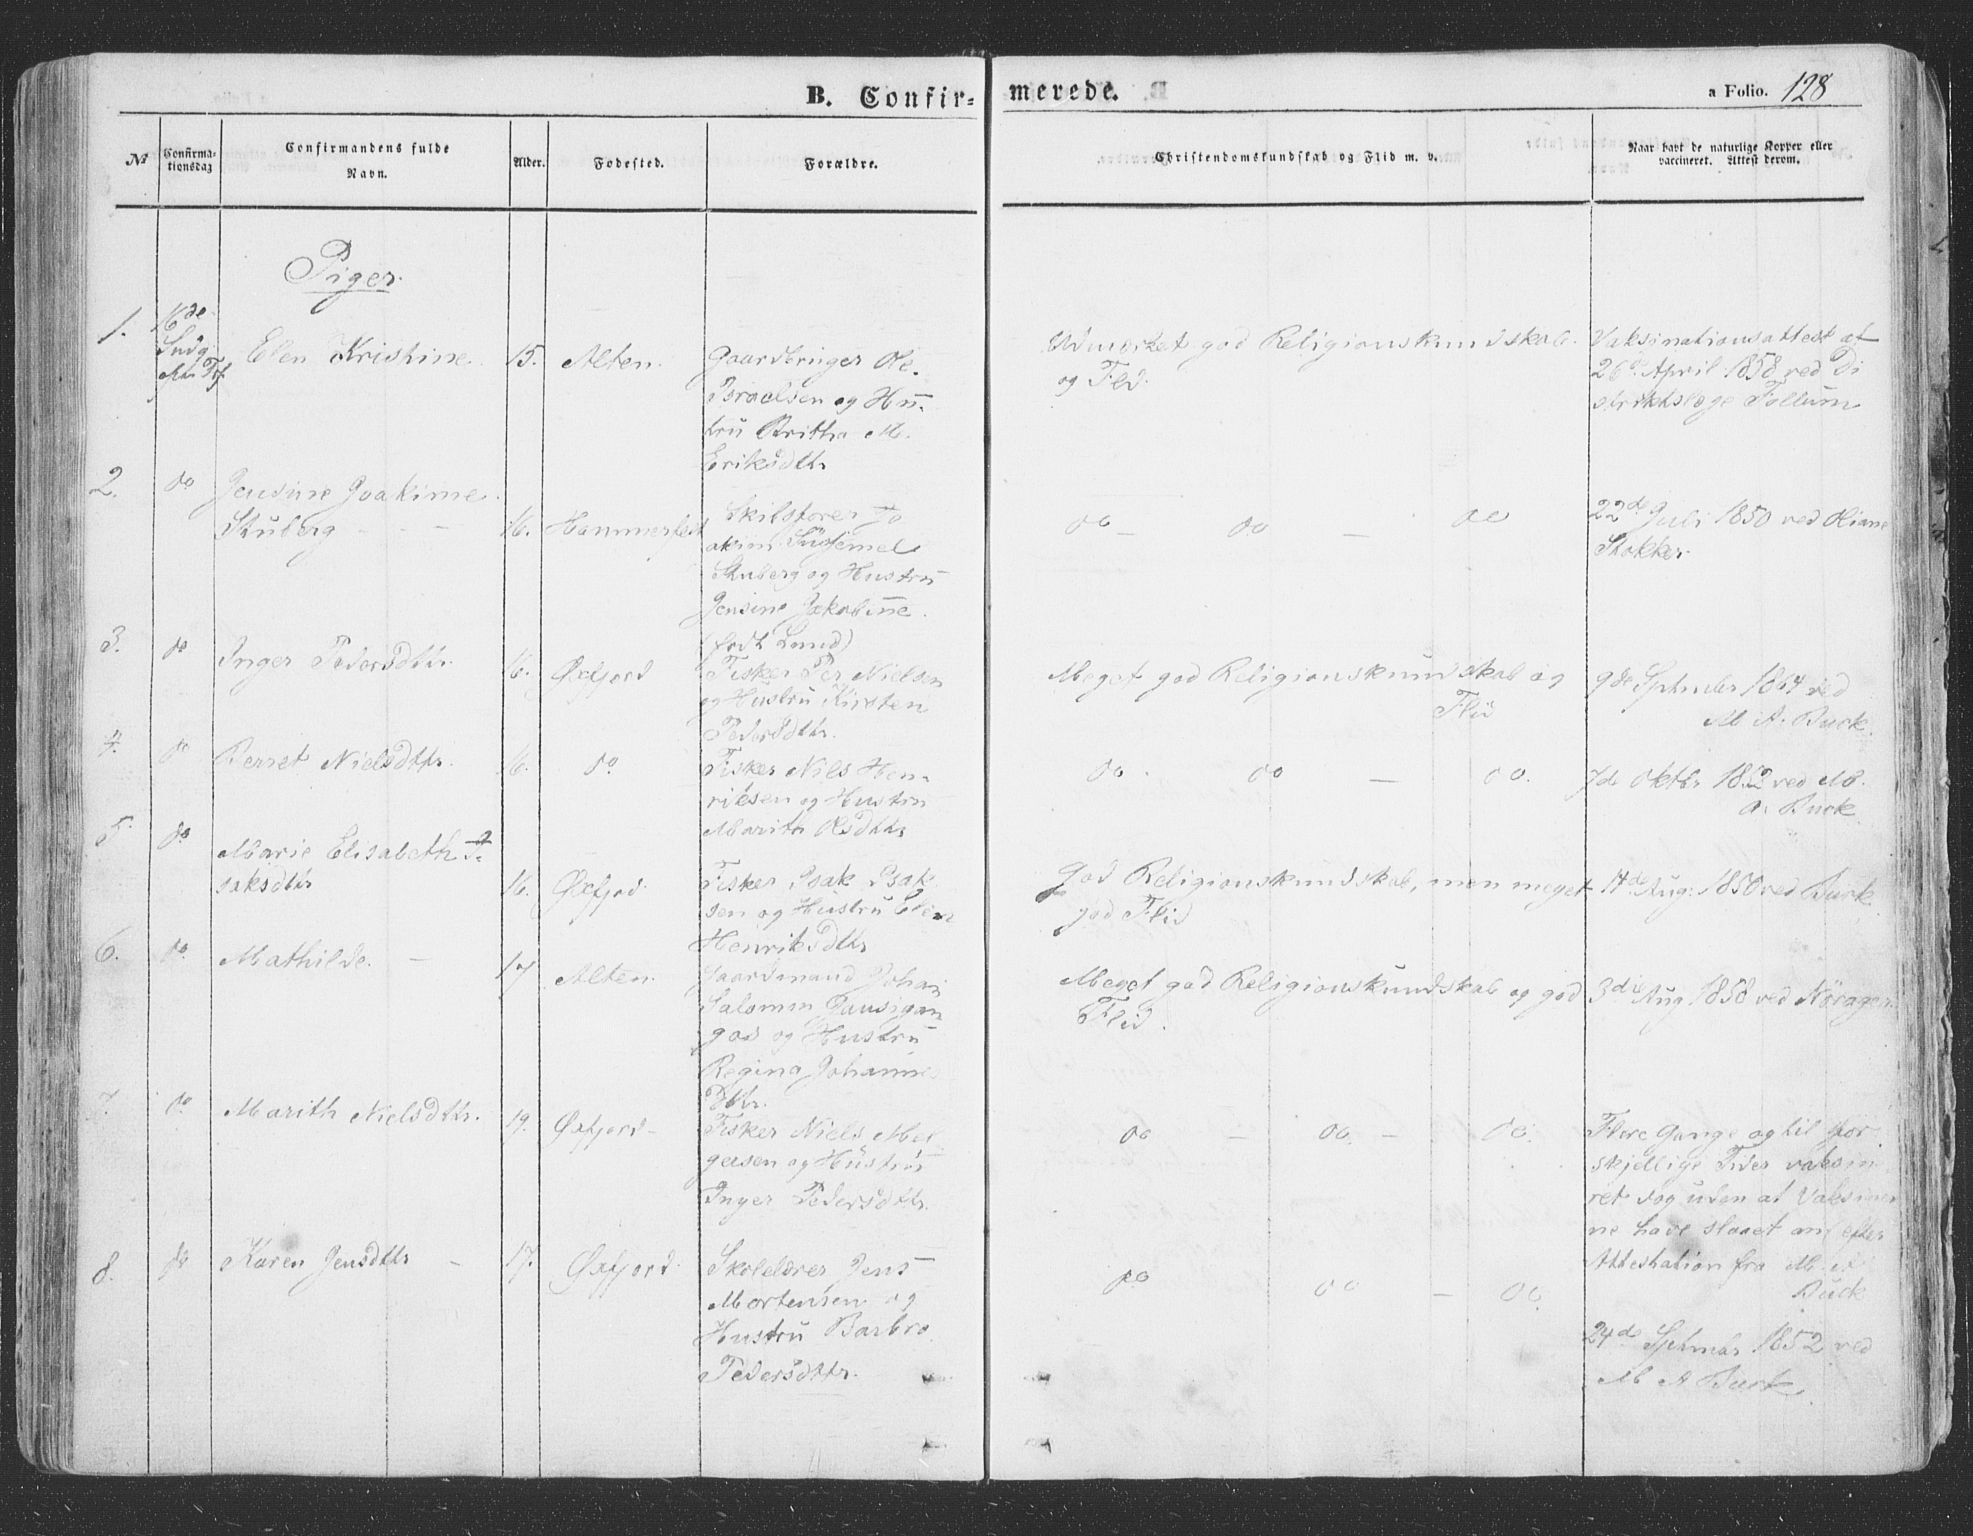 B. Confir- merede.
a Folio. 128
№
Confirma-
tionsdag
Confirmandens fulde
Navn.
Alder.
Fødested.
Forældre.
Christendomskundskab og Flid m. v.
Naar havt de naturlige Kopper eller
vaccineret. Attest derom.
Piger.
1.
16de
Elen Kristine
15.
Alten.
Gaardbruger Ole
Israelsen og Hu-
tru Britha M.
Eriksdttr
Udmærket god Religionskundskab
og Flid.
Vaksinationsattest af
26de April 1858 ved Di
striktslæge Follum
2.
do
Jensine Joakime
Stuberg
16.
Hammerfest
Skibsfører Jo
akim
Stuberg og Hustru
Jensine Jakobine
(født Lund)
do — do — do
22de Juli 1850 ved Oliane
Stokker
3.
do
Inger Pedersdttr.
16.
Øxfjord
Fisker Per Nielsen
og Hustru Kirsten
Pedersdttr.
Meget god Religionskundskab og
Flid
9de Sptmber 1864 ved
M A. Buck
4.
do
Berret Nielsdttr.
16.
do.
Fisker Nils Hen-
riksen og Hustru
Marith Olsdttr
do. do — do.
7de Oktbr 1862 ved M.
A. Buck
5.
do
Marie Elisabeth I-
saksdttr
16.
Øxfjord.
Fisker Isak Isak
sen og Hustru Elen
Henriksdttr
God Religionskundskab, men meget
god Flid
14de Aug: 1850 ved Buck
6.
do.
Mathilde. —
17
Alten.
Gaardmand Johan
Salomon
og Hustru
Regina Johannes
Dttr.
Meget god Religionskundskab og god
Flid.
3die Aug 1858 ved Norager
7.
do.
Marith Nielsdttr.
19.
Øxfjord —
Fisker Niels
og Hustru
Inger Pedersdttr.
do — do. — do.
Flere Gange og til for
skjellige Tider vaksine
ret dog uden at Vaksiner
ne have slaaet an, efter
Attestation fra M. A
Buck
8.
do
Karen Jensdttr —
17.
Øxfjord.
Skolelærer Jens
Mortensen og
Hustru Barbro
Pedersdttr.
do do — do.
24de Sptmbr 1852 ved
M A Buck